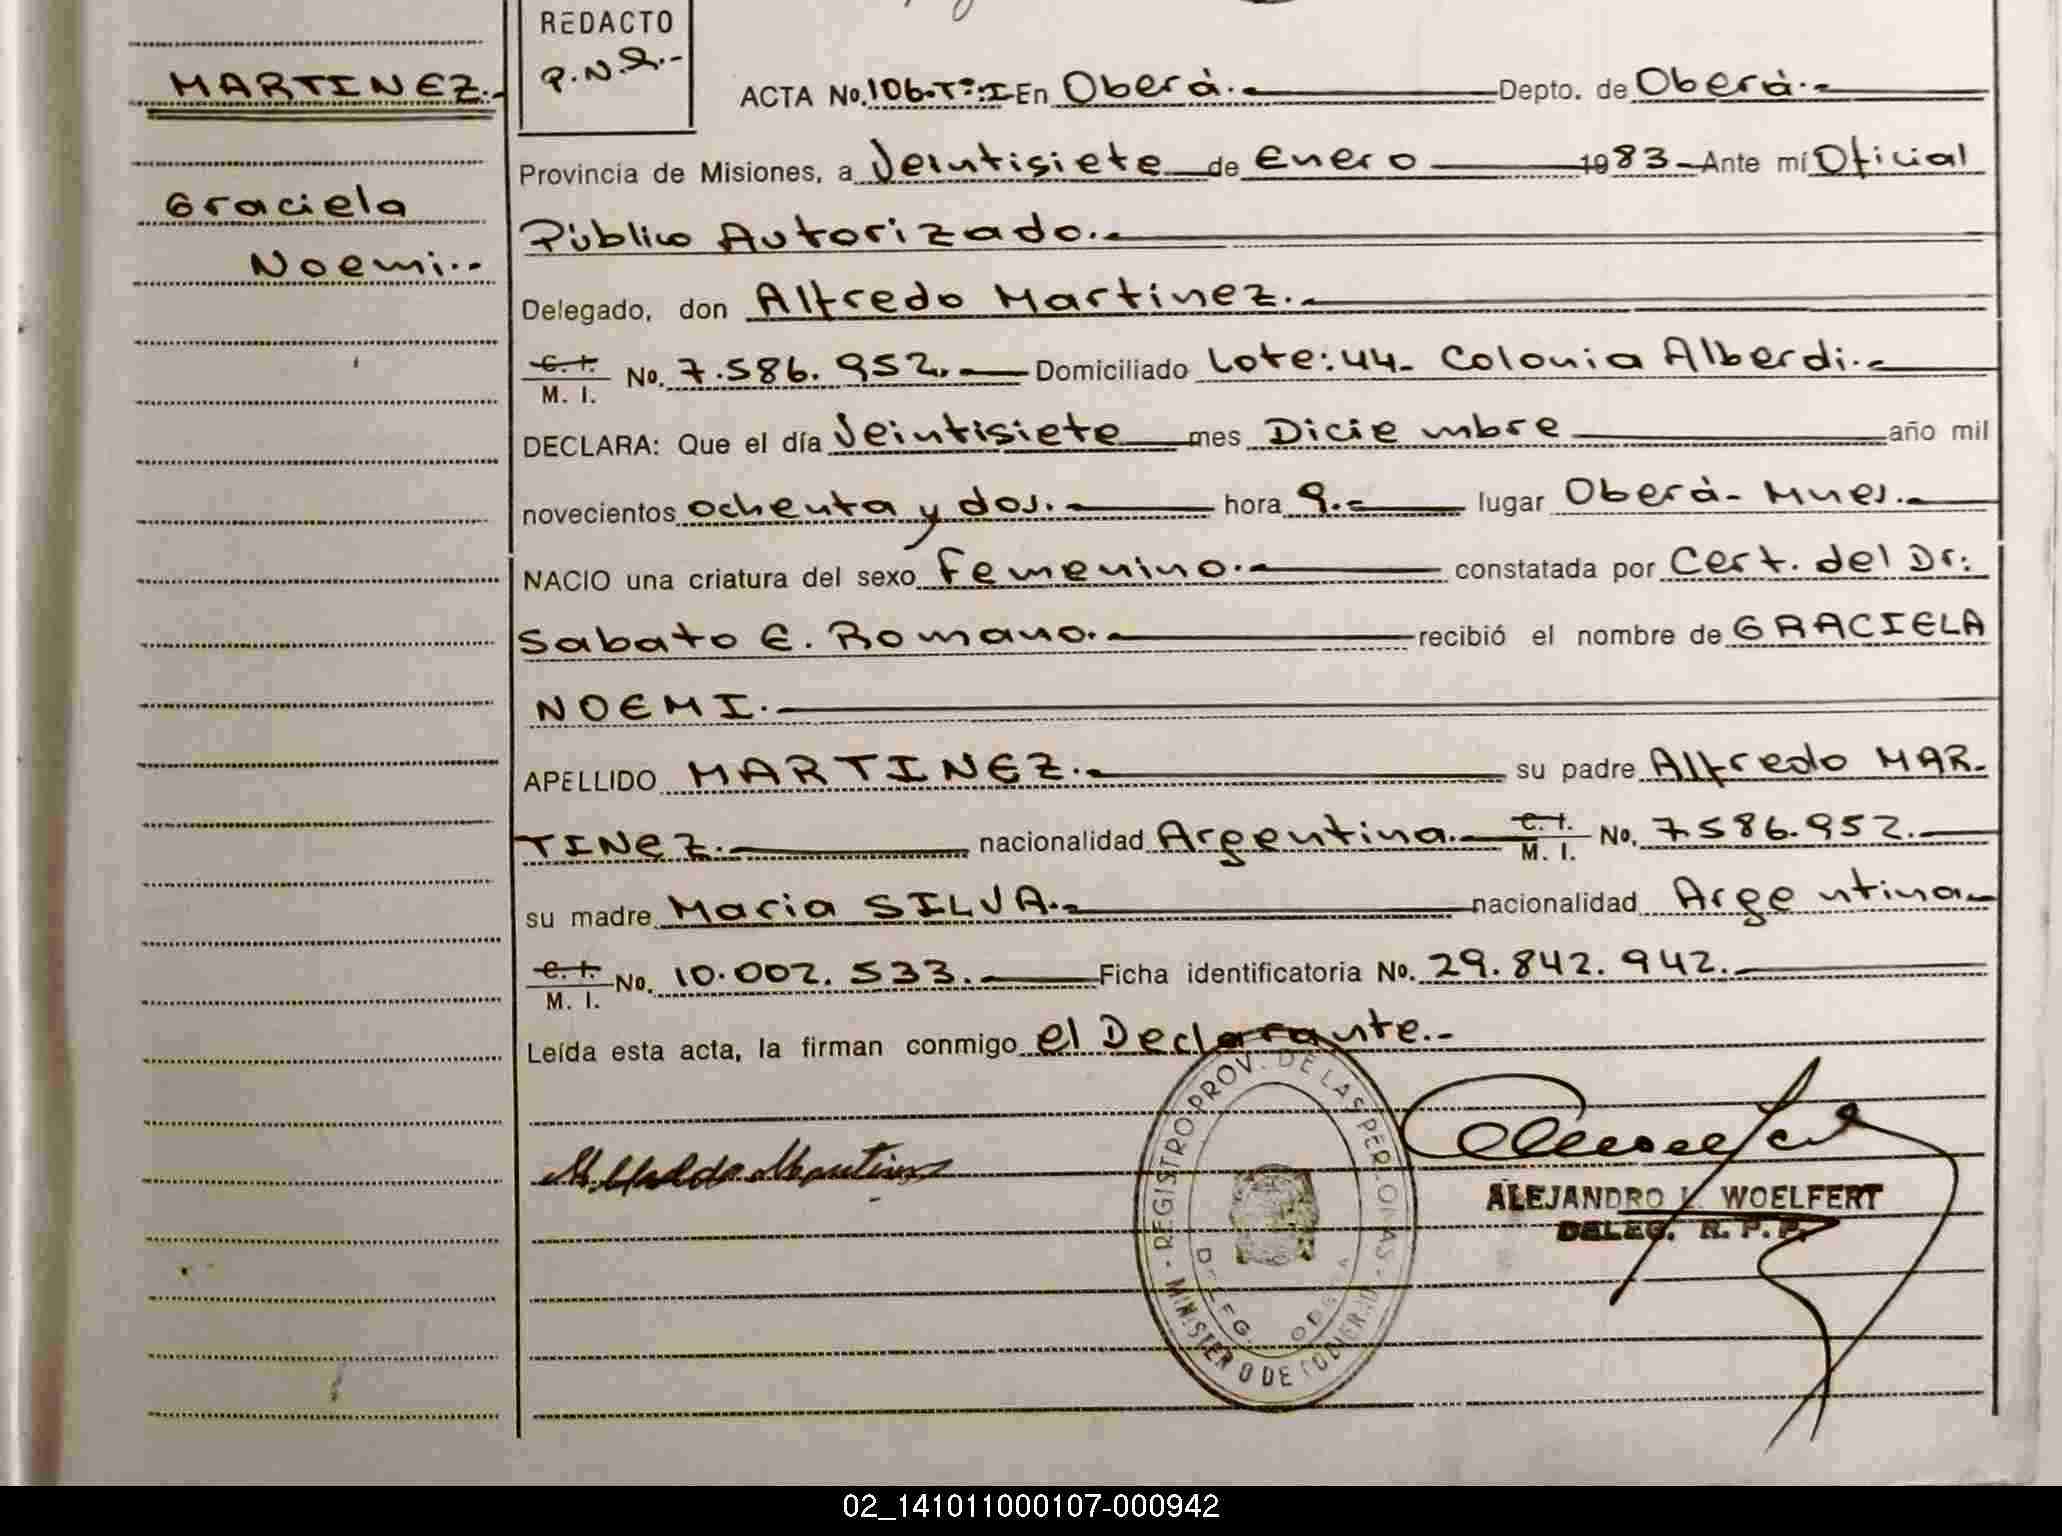 REDACTO
P.N.R.-
MARTINEZ.-
ACTA No. 106.Tº:I En Oberá.- Depto. de Oberá.-
Provincia de Misiones, a Veintisiete de Enero 1983 Ante mí Oficial
Graciela
Público Autorizado.-
Noemi.--
Delegado, don Alfredo Martinez.-
C. I.
M. I. No. 7.586.952.- Domiciliado Lote: 44- Colonia Alberdi.-
DECLARA: Que el día Veintisiete mes Diciembre año mil
novecientos ochenta y dos.- hora 9.- lugar Oberá- Mnes.-
NACIO una criatura del sexo femenino.- constatada por Cert. del Dr:
Sabato E. Romano.- recibió el nombre de GRACIELA
NOEMI.-
APELLIDO MARTINEZ.- su padre Alfredo MAR-
TINEZ.- nacionalidad Argentina.- C. I.
M. I. No. 7.586.952.-
su madre Maria SILVA.- nacionalidad Argentina-
C. I.
M. I. No. 10.002.533.- Ficha identificatoria No. 29.842.942.-
Leída esta acta, la firman conmigo el Declarante.-
REGISTRO PROV. DE LAS PERSONAS - MINISTERIO DE GOBIERNO
DELEG. OBERA
ALEJANDRO L. WOELFERT
DELEG. R. P. P.
02_141011000107-000942